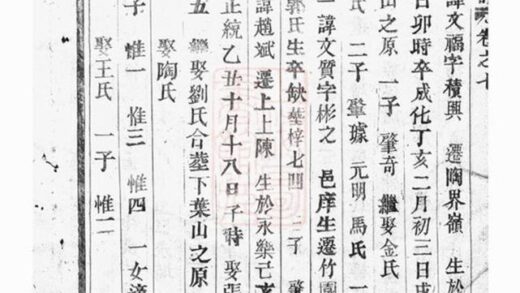 譜卷之七
諱文福字積興 遷陶界嶺 生於
日卯時卒成化丁亥二月初三日戌
山之原 一子 肇奇 繼娶金氏
氏 二子 肇璩 元明 馬氏 一
一諱文質字彬之 邑庠生遷竹園
郭氏生卒缺塟梓七園 二子 肇
諱趙斌 遷上上陳 生於永樂己亥
正統乙丑十月十八日子時 娶張
五 繼娶劉氏合塟下葉山之原
娶陶氏
子 惟一 惟三 惟四 一女適
娶王氏 一子 惟二